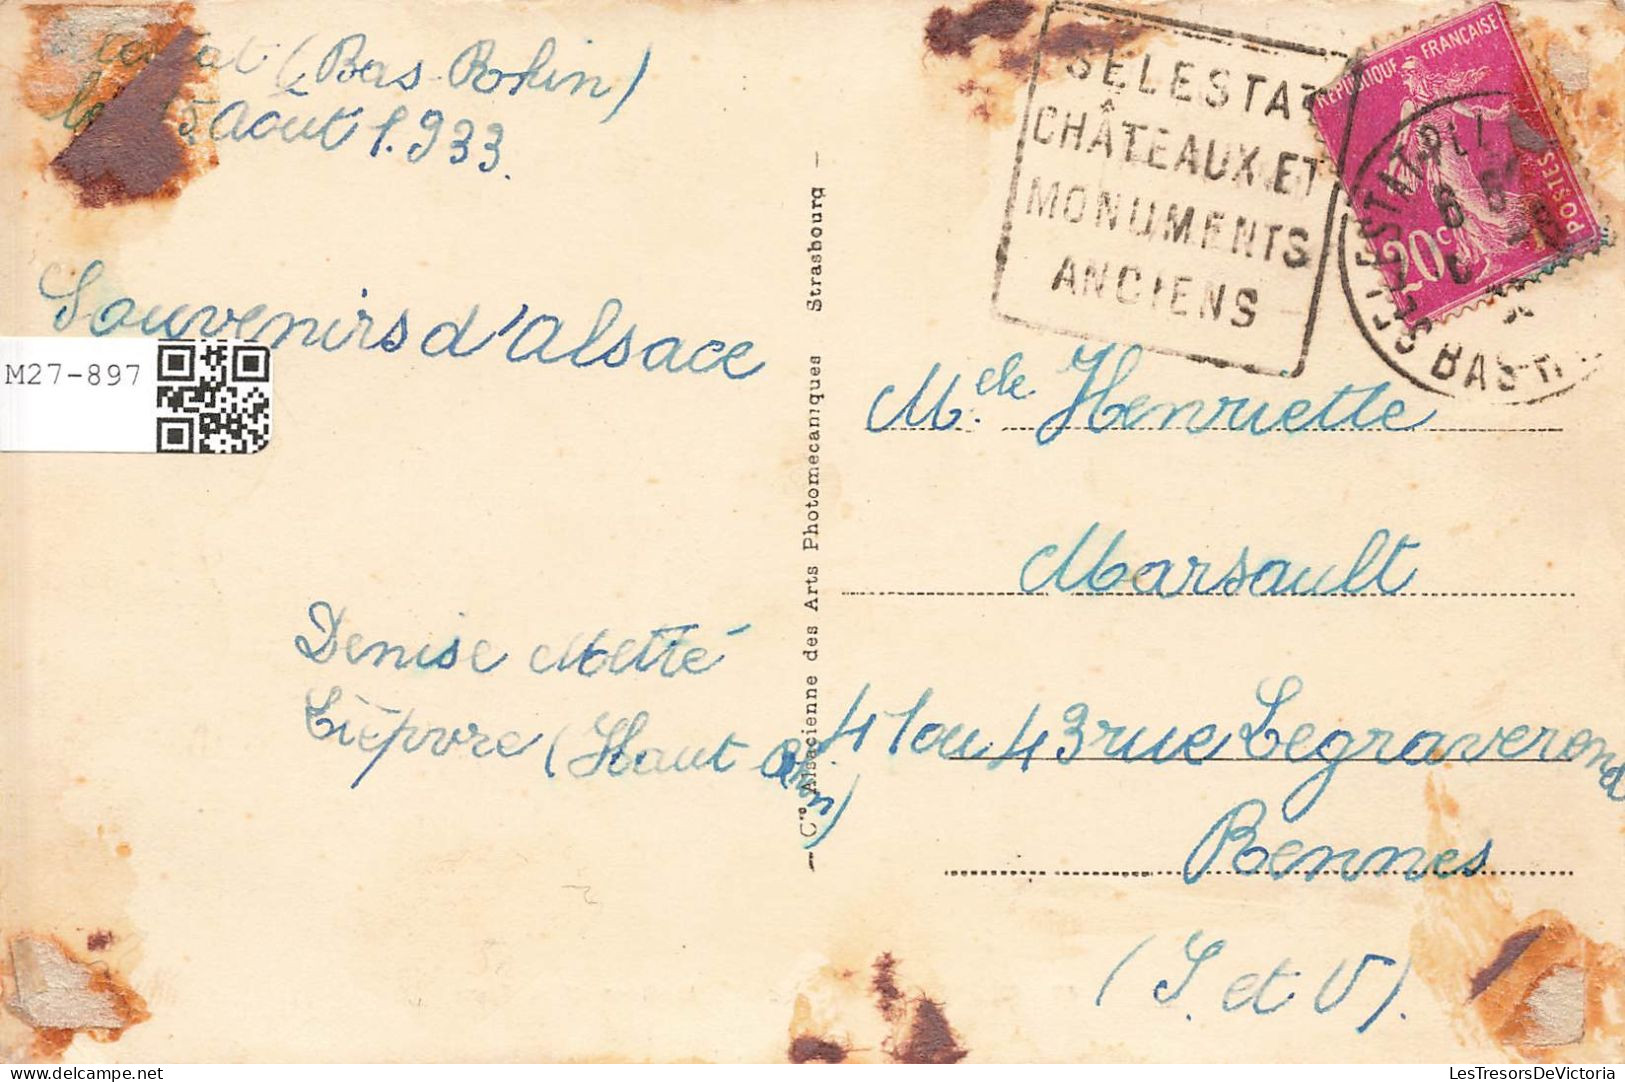 (Bas-Rhin)
Août 1.933.
Souvenirs d'alsace
Denise Metté
Lièpvre (Haut Rhin)
M27-897
— Cie Alsacienne des Arts Photomecaniques Strasbourg —
SELESTAT
CHÂTEAUX ET
MONUMENTS
ANCIENS
REPUBLIQUE FRANÇAISE
POSTES
20c
SELESTAT BAS-R
Melle Henriette
Marsault
41 ou 43 rue Legraverend
Rennes
(I. et V).
www.delcampe.net
LesTresorsDeVictoria